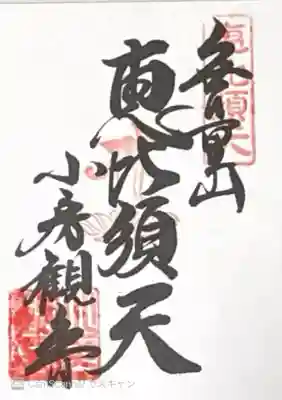 無量山
恵比須天
小房觀音
恵比須天
CamScannerでスキャン